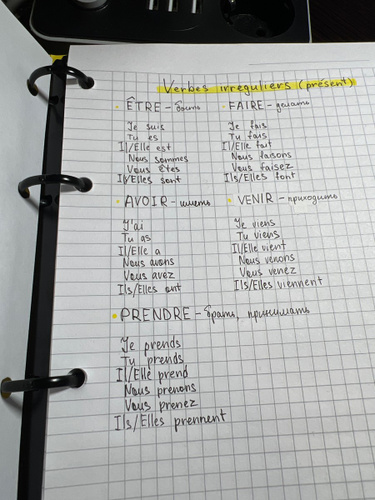 Verbes irreguliers (présent)
• ÊTRE - быть
Je suis
Tu es
Il/Elle est
Nous sommes
Vous êtes
Ils/Elles sont
• FAIRE - делать
Je fais
Tu fais
Il/Elle fait
Nous faisons
Vous faisez
Ils/Elles font
• AVOIR - иметь
J'ai
Tu as
Il/Elle a
Nous avons
Vous avez
Ils/Elles ont
• VENIR - приходить
Je viens
Tu viens
Il/Elle vient
Nous venons
Vous venez
Ils/Elles viennent
• PRENDRE - брать, принимать
Je prends
Tu prends
Il/Elle prend
Nous prenons
Vous prenez
Ils/Elles prennent